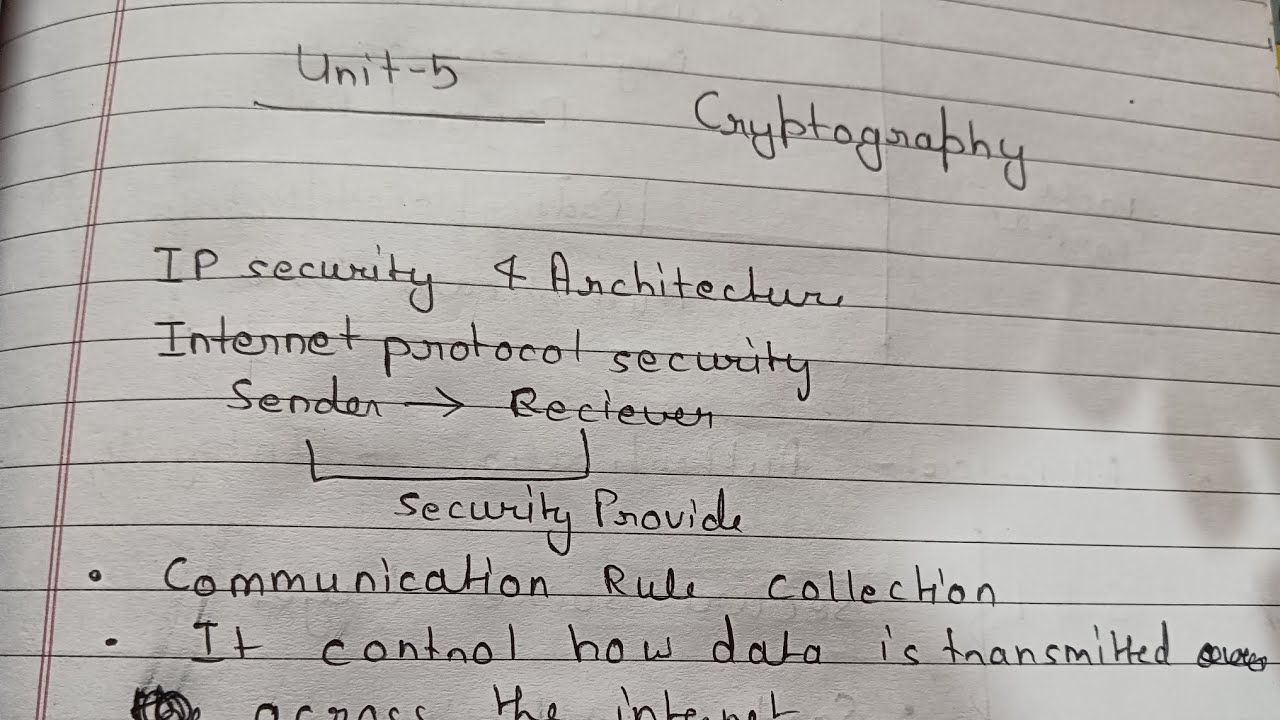 Unit-5
Cryptography
IP security & Architecture
Internet protocol security
Sender → Reciever
Security Provide
• Communication Rule collection
• It control how data is transmitted
across the internet